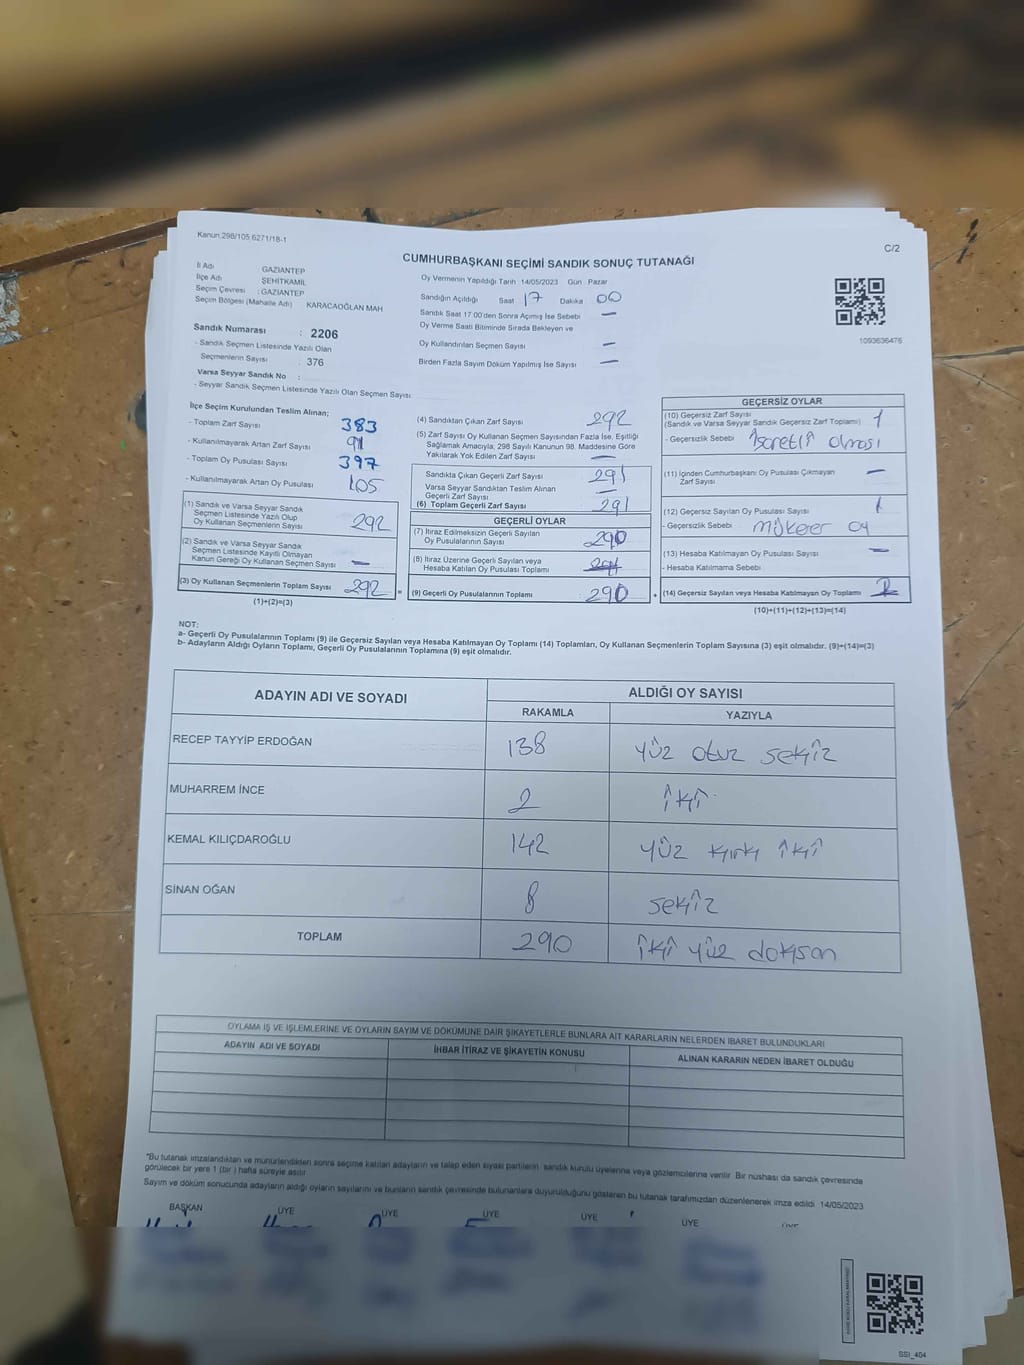 Kanun.298/105,6271/18-1
C/2
CUMHURBAŞKANI SEÇİMİ SANDIK SONUÇ TUTANAĞI
İl Adı GAZİANTEP
İlçe Adı ŞEHİTKAMİL
Seçim Çevresi : GAZİANTEP
Seçim Bölgesi (Mahalle Adı) KARACAOĞLAN MAH
Oy Vermenin Yapıldığı Tarih 14/05/2023 Gün Pazar
Sandığın Açıldığı Saat 17 Dakika 00
Sandık Saat 17:00'den Sonra Açımış İse Sebebi —
Oy Verme Saati Bitiminde Sırada Bekleyen ve
Oy Kullandırılan Seçmen Sayısı —
Birden Fazla Sayım Döküm Yapılmış İse Sayısı —
1093636476
Sandık Numarası : 2206
- Sandık Seçmen Listesinde Yazılı Olan
Seçmenlerin Sayısı : 376
Varsa Seyyar Sandık No :
- Seyyar Sandık Seçmen Listesinde Yazılı Olan Seçmen Sayısı
İlçe Seçim Kurulundan Teslim Alınan;
- Toplam Zarf Sayısı 383
- Kullanılmayarak Artan Zarf Sayısı 91
- Toplam Oy Pusulası Sayısı 397
- Kullanılmayarak Artan Oy Pusulası 105
(1) Sandık ve Varsa Seyyar Sandık
Seçmen Listesinde Yazılı Olup
Oy Kullanan Seçmenlerin Sayısı 292
(2) Sandık ve Varsa Seyyar Sandık
Seçmen Listesinde Kayıtlı Olmayan
Kanun Gereği Oy Kullanan Seçmen Sayısı —
(3) Oy Kullanan Seçmenlerin Toplam Sayısı 292
(1)+(2)=(3)
(4) Sandıktan Çıkan Zarf Sayısı 292
(5) Zarf Sayısı Oy Kullanan Seçmen Sayısından Fazla İse, Eşitliği
Sağlamak Amacıyla; 298 Sayılı Kanunun 98. Maddesine Göre
Yakılarak Yok Edilen Zarf Sayısı —
Sandıkta Çıkan Geçerli Zarf Sayısı 291
Varsa Seyyar Sandıktan Teslim Alınan
Geçerli Zarf Sayısı —
(6) Toplam Geçerli Zarf Sayısı 291
GEÇERLİ OYLAR
(7) İtiraz Edilmeksizin Geçerli Sayılan
Oy Pusulalarının Sayısı 290
(8) İtiraz Üzerine Geçerli Sayılan veya
Hesaba Katılan Oy Pusulası Toplamı
= (9) Geçerli Oy Pusulalarının Toplamı : 290 +
GEÇERSİZ OYLAR
(10) Geçersiz Zarf Sayısı
(Sandık ve Varsa Seyyar Sandık Geçersiz Zarf Toplamı) 1
- Geçersizlik Sebebi İşaretli olması
(11) İçinden Cumhurbaşkanı Oy Pusulası Çıkmayan
Zarf Sayısı —
(12) Geçersiz Sayılan Oy Pusulası Sayısı 1
- Geçersizlik Sebebi mükerer oy
(13) Hesaba Katılmayan Oy Pusulası Sayısı —
- Hesaba Katılmama Sebebi
(14) Geçersiz Sayılan veya Hesaba Katılmayan Oy Toplamı 2
(10)+(11)+(12)+(13)=(14)
NOT:
a- Geçerli Oy Pusulalarının Toplamı (9) ile Geçersiz Sayılan veya Hesaba Katılmayan Oy Toplamı (14) Toplamları, Oy Kullanan Seçmenlerin Toplam Sayısına (3) eşit olmalıdır. (9)+(14)=(3)
b- Adayların Aldığı Oyların Toplamı, Geçerli Oy Pusulalarının Toplamına (9) eşit olmalıdır.
ADAYIN ADI VE SOYADI ALDIĞI OY SAYISI
RAKAMLA YAZIYLA
RECEP TAYYİP ERDOĞAN 138 yüz otuz sekiz
MUHARREM İNCE 2 iki
KEMAL KILIÇDAROĞLU 142 yüz kırk iki
SİNAN OĞAN 8 sekiz
TOPLAM 290 iki yüz doksan
OYLAMA İŞ VE İŞLEMLERİNE VE OYLARIN SAYIM VE DÖKÜMÜNE DAİR ŞİKAYETLERLE BUNLARA AİT KARARLARIN NELERDEN İBARET BULUNDUKLARI
ADAYIN ADI VE SOYADI İHBAR İTİRAZ VE ŞİKAYETİN KONUSU ALINAN KARARIN NEDEN İBARET OLDUĞU
"Bu tutanak imzalandıktan ve mühürlendikten sonra seçime katılan adayların ve talep eden siyasi partilerin sandık kurulu üyelerine veya gözlemcilerine verilir. Bir nüshası da sandık çevresinde
görülecek bir yere 1 (bir ) hafta süreyle asılır.
Sayım ve döküm sonucunda adayların aldığı oyların sayılarını ve bunların sandık çevresinde bulunanlara duyurulduğunu gösteren bu tutanak tarafımızdan düzenlenerek imza edildi. 14/05/2023
BAŞKAN ÜYE ÜYE ÜYE ÜYE ÜYE ÜYE
SSI_404